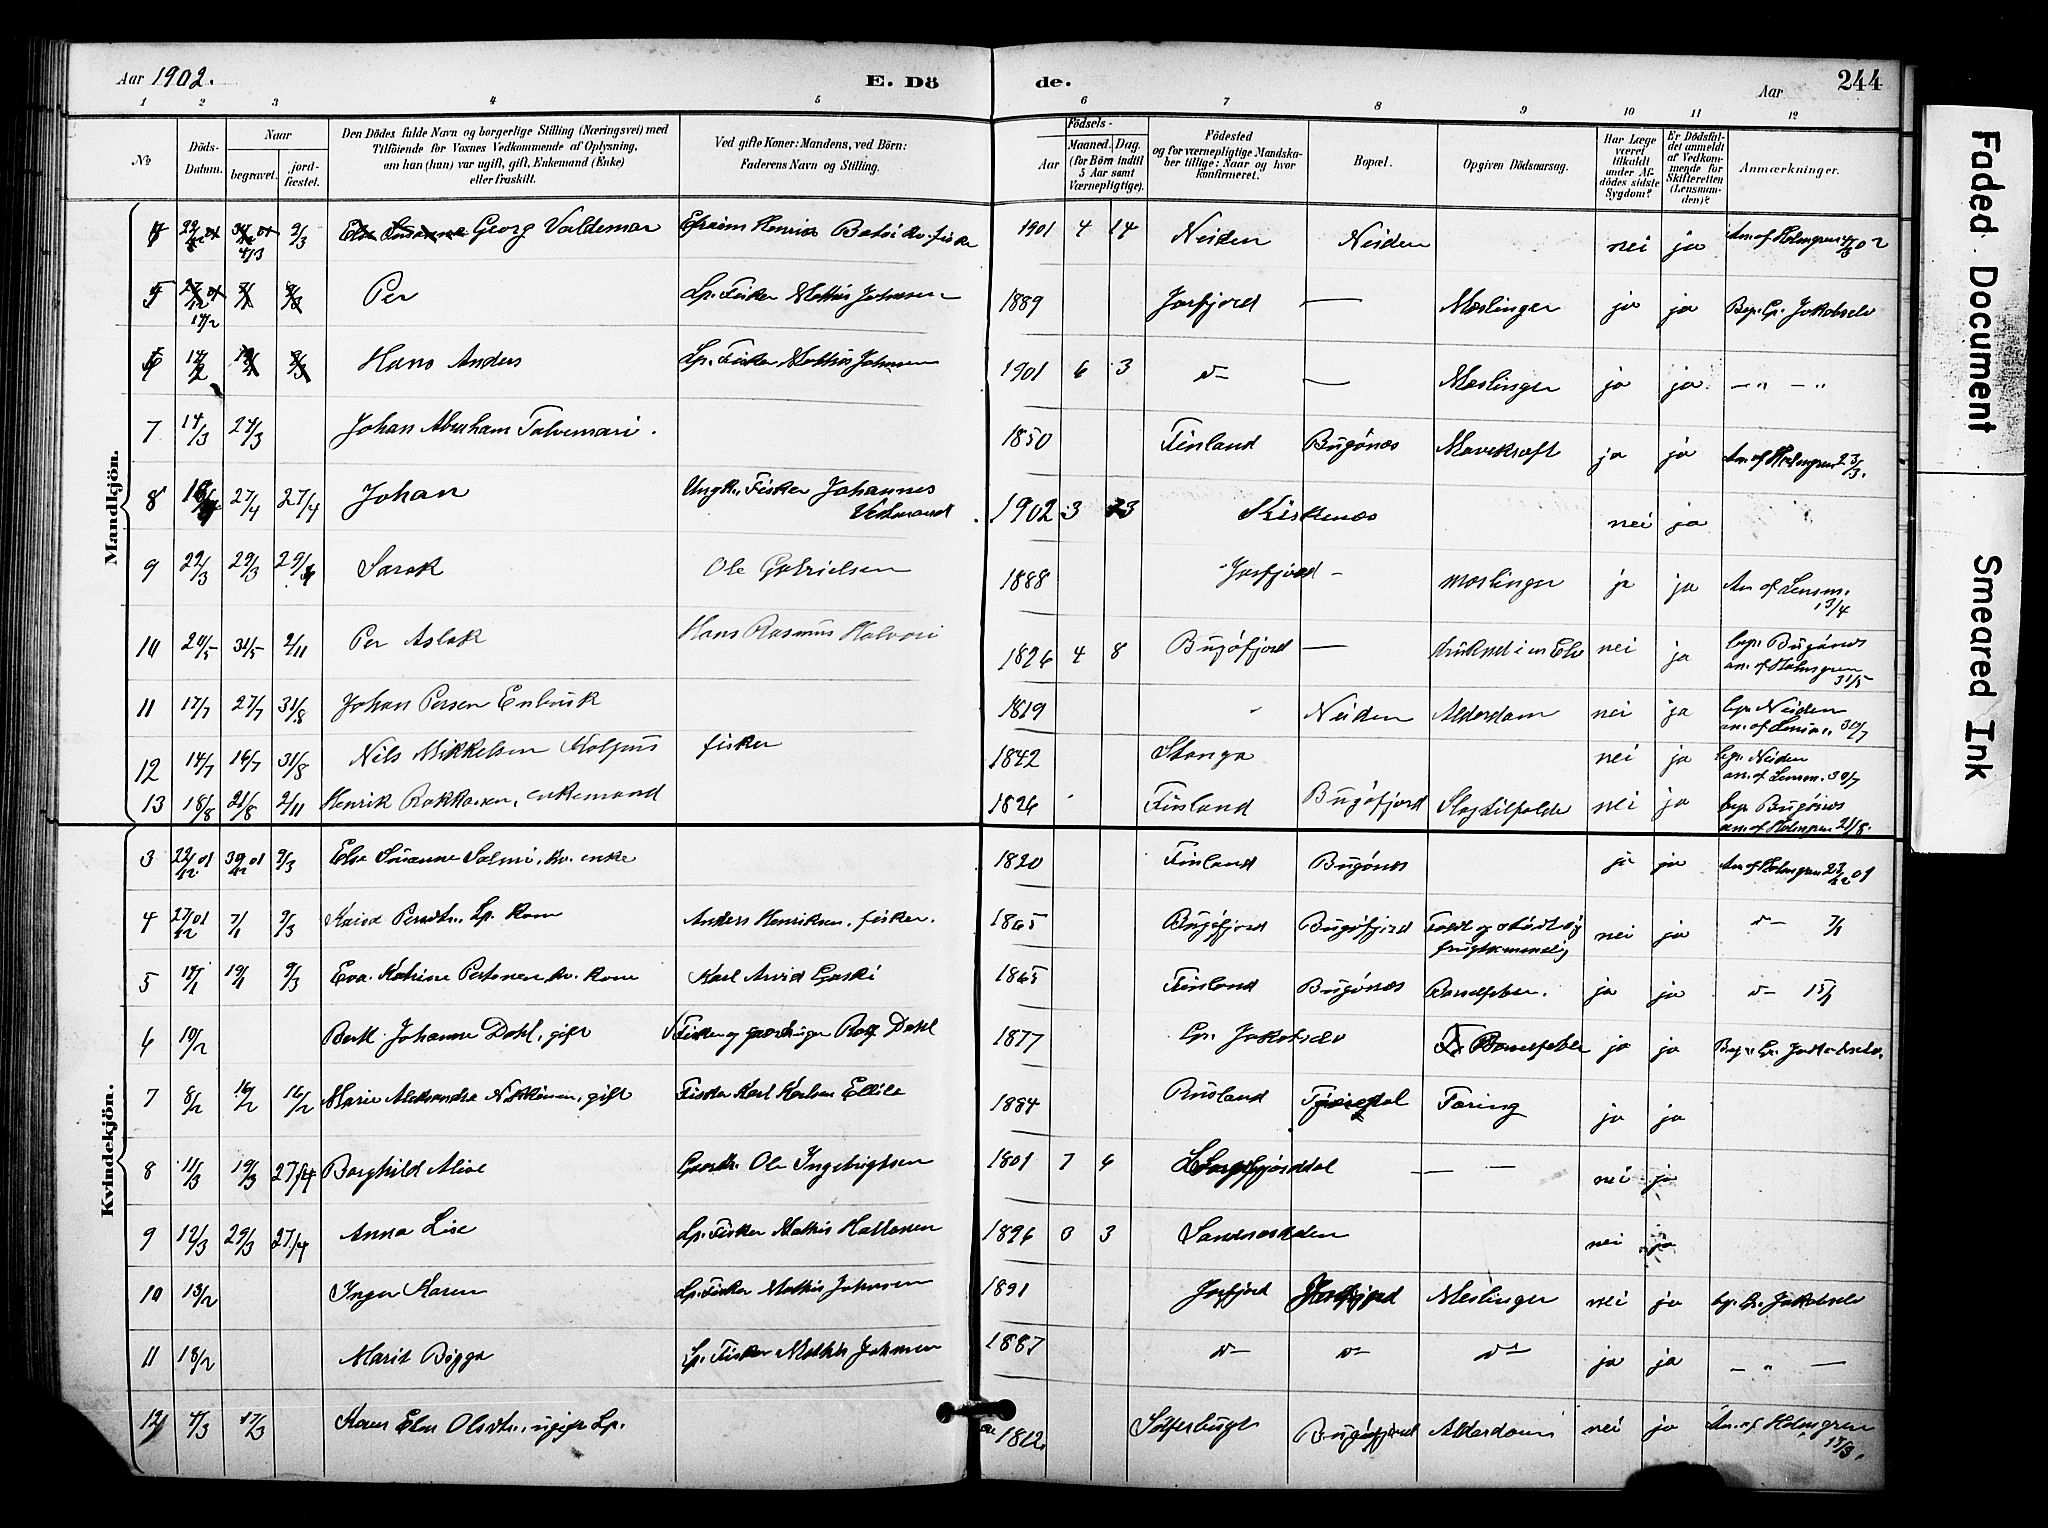 Aar 1902. E. Dö de. Aar 244
1 2 3 4 5 6 7 8 9 10 11 12
No
Döds-Datum.
Naar
begravet.
jord-fæstet.
Den Dödes fulde Navn og borgerlige Stilling (Næringsvei) med
Tilföiende for Voxnes Vedkommende af Oplysning,
om han (hun) var ugift, gift, Enkemand (Enke)
eller fraskilt.
Ved gifte Koner: Mandens, ved Börn:
Faderens Navn og Stilling.
Födsels-
Aar
Maaned. Dag.
(for Börn indtil
5 Aar samt
Værnepligtige).
Födested
og for værnepligtige Mandska-
ber tillige: Naar og hvor
konfirmeret.
Bopæl.
Opgiven Dödsaarsag.
Har Læge
været
tilkaldt
under Af-
dödes sidste
Sygdom?
Er Dödsfal-
det anmeldt
af Vedkom-
mende for
Skifteretten
(Lensman-
den)?
Anmærkninger.
Mandkjön.
Georg Valdemar Efraim Henrik 1901 4 14 Neiden Neiden nei ja An. af Holmgren
5 Per Lp. Fisker Mathis Johnsen 1889 Jarfjord — Mæslinger ja ja Jakobselv
6 Hans Anders Lp. Fisker Mathis Johnsen 1901 6 3 d— — Mæslinger ja ja — „ — „
7 14/3 27/3 Johan Abraham Talvensari. 1850 Finland Bugönæs Mavekræft ja ja An. af Holmgren 23/3.
8 27/4 27/4 Johan Ungk. Fisker Johannes
1902 3 Kirkenæs nei ja
9 22/3 29/3 Sarak Ole Gabrielsen 1888 Jarfjord — Mæslinger ja ja An. af Lensm.
13/4
10 20/5 31/5 2/11 Per Aslak Hans Rasmus Halvari 1826 4 8 Bugöfjord — druknet i en Elv nei ja bgr. Bugönæs
an. af Holmgren
31/5
11 17/7 27/7 31/8 Johan Persen 1819 Neiden Alderdom nei ja bgr. Neiden
an. af Lensm. 30/7
12 14/7 16/7 31/8 Nils Mikkelsen fisker 1842 Stanga nei ja bgr. Neiden
an. af Lensm. 30/7
13 18/8 21/8 2/11 Henrik enkemand 1826 Finland Bugöfjord Slagtilfælde nei ja bgr. Bugönæs
an. af Holmgren 21/8.
Kvindekjön.
3 22/12 01 30/12 01 9/3 Else Susanne Salmi, kv. enke 1820 Finland Bugönæs ja ja An. af Holmgren 23/12 01
4 27/12 01 7/1 9/3 Kaisa Persdtr. Lp. Kone Anders Henriksen, fisker. 1865 Bugöfjord Bugöfjord nei ja d— 7/1
5 19/1 9/3 Eva Katrine Pertonen kv. kone Karl Arvid 1865 Finland Bugönæs Barselfeber. ja ja d— 15/1
6 10/2 Johanne Dahl, gift Fisker og Dahl 1877 Gr. Jakobselv Barselfeber ja ja
7 8/2 16/2 16/2 Marie Aleksandra gift Fisker Karl Karlsen 1884 Rusland Tæring ja ja
8 11/3 19/3 27/4 Borghild Alise Gaardbr. Ole Ingebrigtsen 1801 7 6 — — nei ja
9 12/3 29/3 27/4 Anna Lise Lp. Fisker Mathis 1896 0 3 nei ja
10 13/2 Inger Karen Lp. Fisker Mathis Johnsen 1891 Jarfjord Jarfjord Mæslinger nei ja bgr. Gr. Jakobselv
11 18/2 Marit Bigga Lp. Fisker Mathis Johnsen 1887 d— d— d— ja ja — „ —
12 4/3 17/3 Olsdtr., ugift Lp. 1812 Bugöfjord Alderdom nei ja An. af Holmgren
17/3.
Faded Document
Smeared Ink